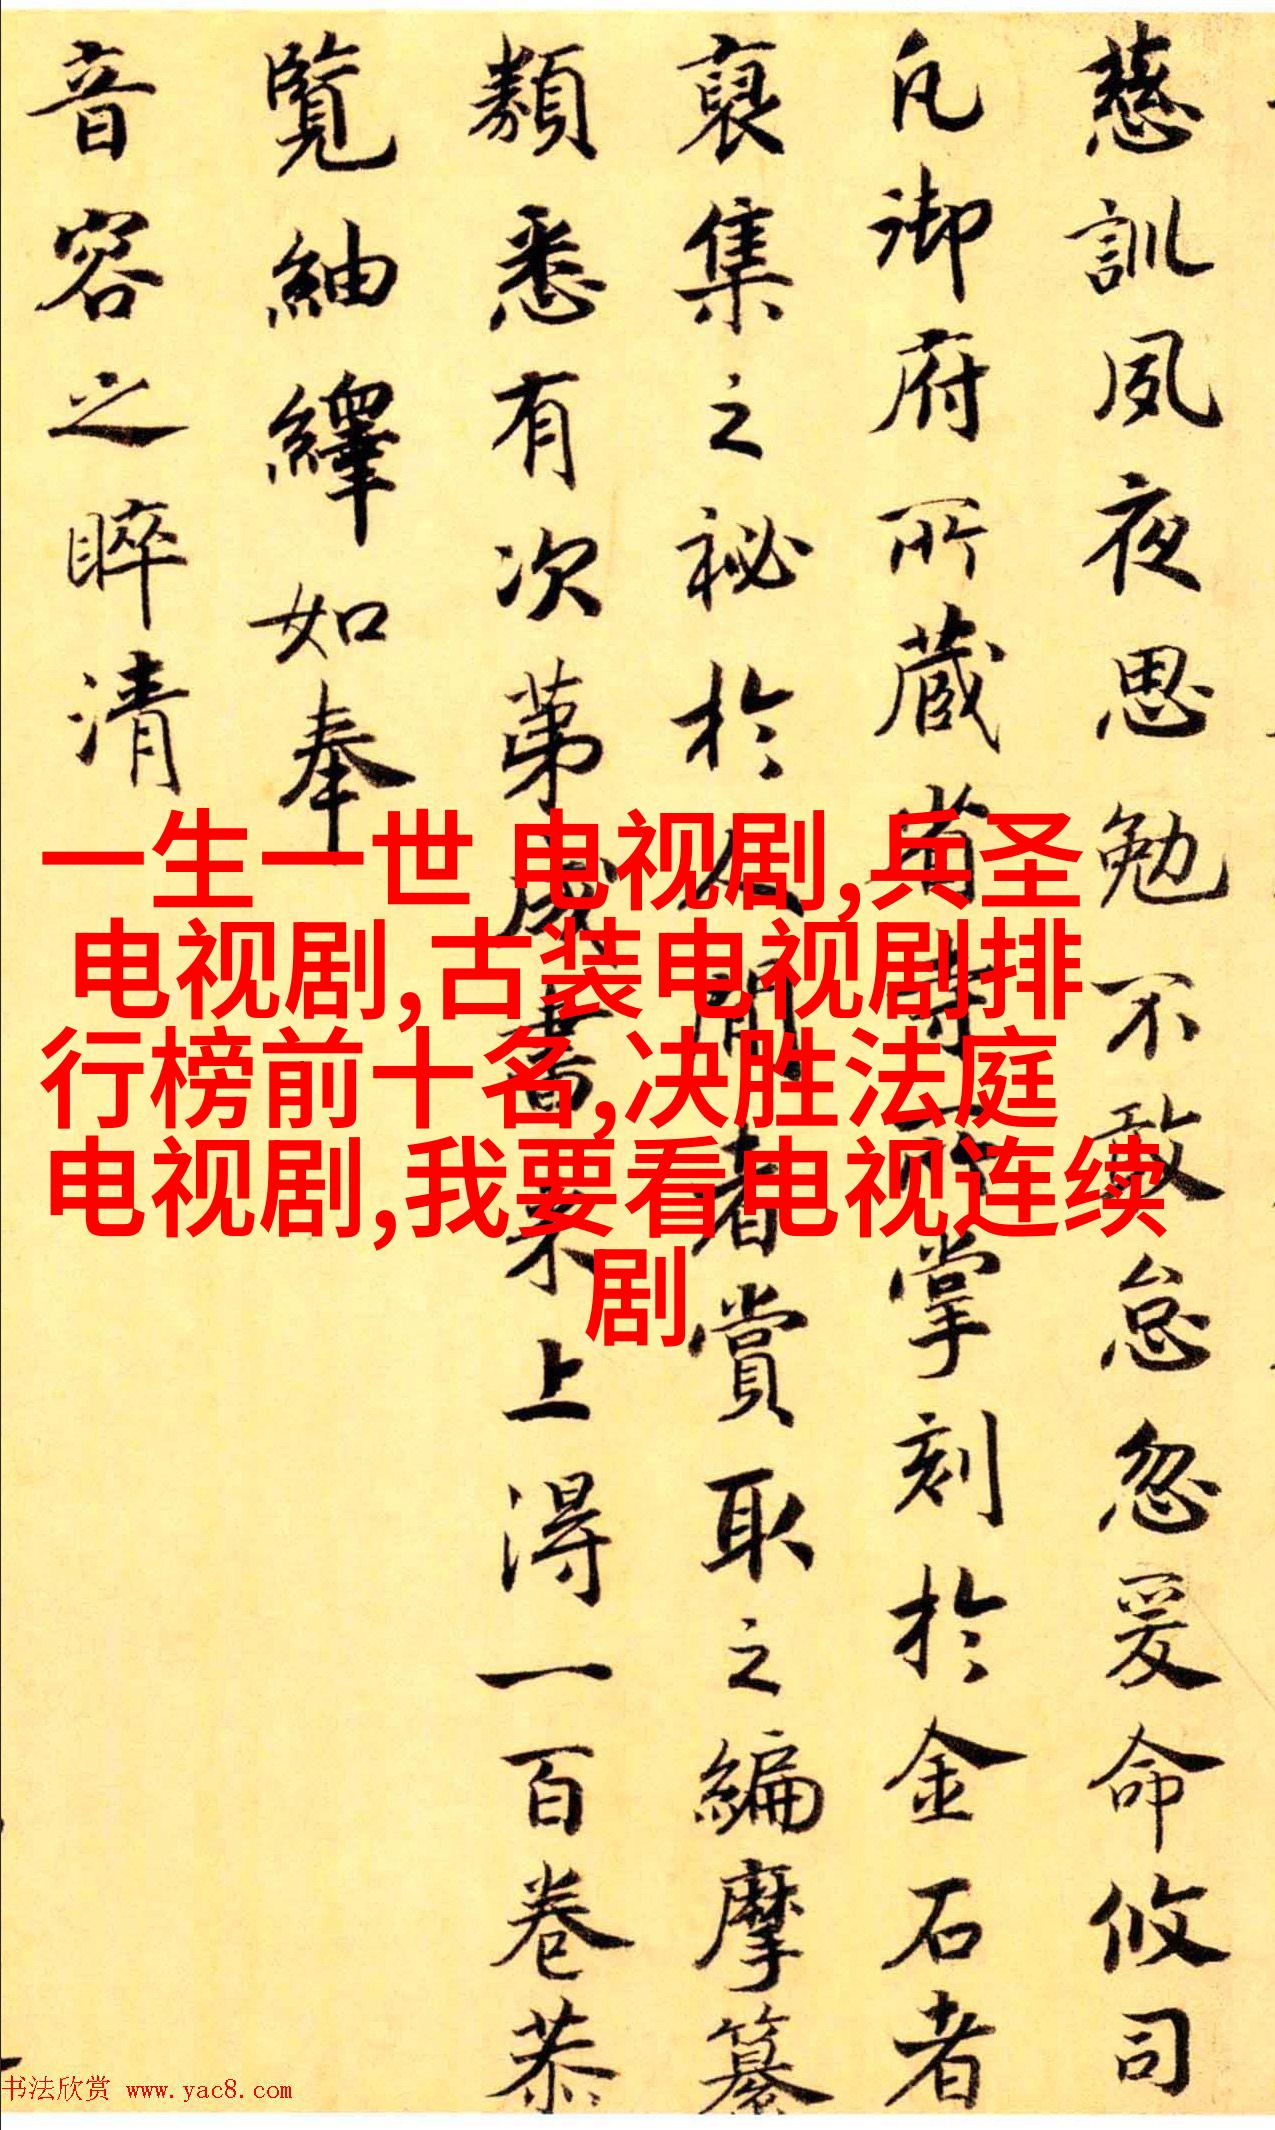 慈訓夙夜思勉不敢怠忽爰命攸司
凡御府所蔵省寺所掌刻於金石者
裒集之祕於人間者賞取之編摩纂
類悉有次第咸書来上淂一百卷恭
覽紬繹如奉
音容之睟清
一生一世 电视剧,兵圣
电视剧,古装电视剧排
行榜前十名,决胜法庭
电视剧,我要看电视连续
剧
书法欣赏 www.yac8.com